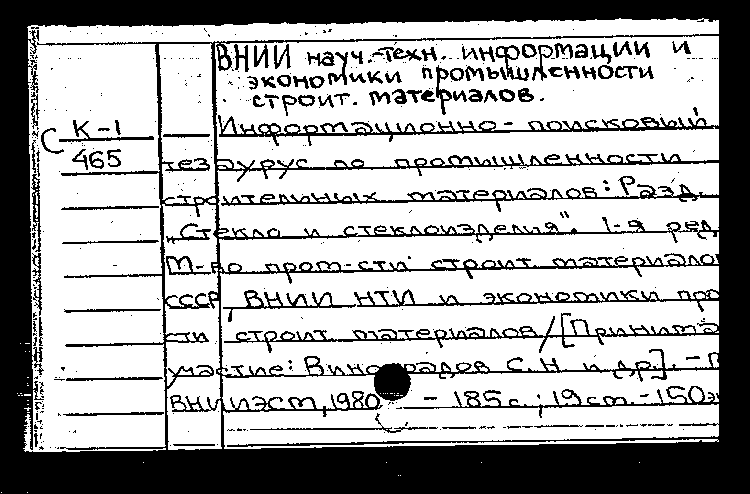 ВНИИ науч.-техн. информации и
экономики промышленности
строит. материалов.
С К-1
465
Информационно-поисковый
тезаурус по промышленности
строительных материалов: Разд.
„Стекло и стеклоизделия". 1-я ред.
М-во пром-сти строит материало
СССР, ВНИИ НТИ и экономики про
сти строит материалов/[Принима
участие: Виноградов С.Н. и др.]. -
ВНИИЭСМ, 1980 - 185 с.; 19 см. - 150 эк